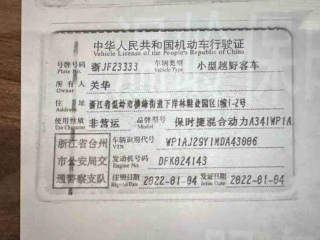 中华人民共和国机动车行驶证
Vehicle License of the People's Republic of China
号牌号码 浙JFZ3333 车辆类型 小型越野客车
Plate No. Vehicle Type
所有人 关华
Owner
住址 浙江省温岭市横峰街道下洋林鞋业园区1幢1-2号
Address
使用性质 非营运 品牌型号 保时捷混合动力A34IWP1A
Use Character Model
浙江省台州市公安局交通警察支队
车辆识别代号 WP1AJ29Y1MDA43006
VIN
发动机号码 DFK024143
Engine No.
注册日期 2022-01-04 发证日期 2022-01-04
Register Date Issue Date